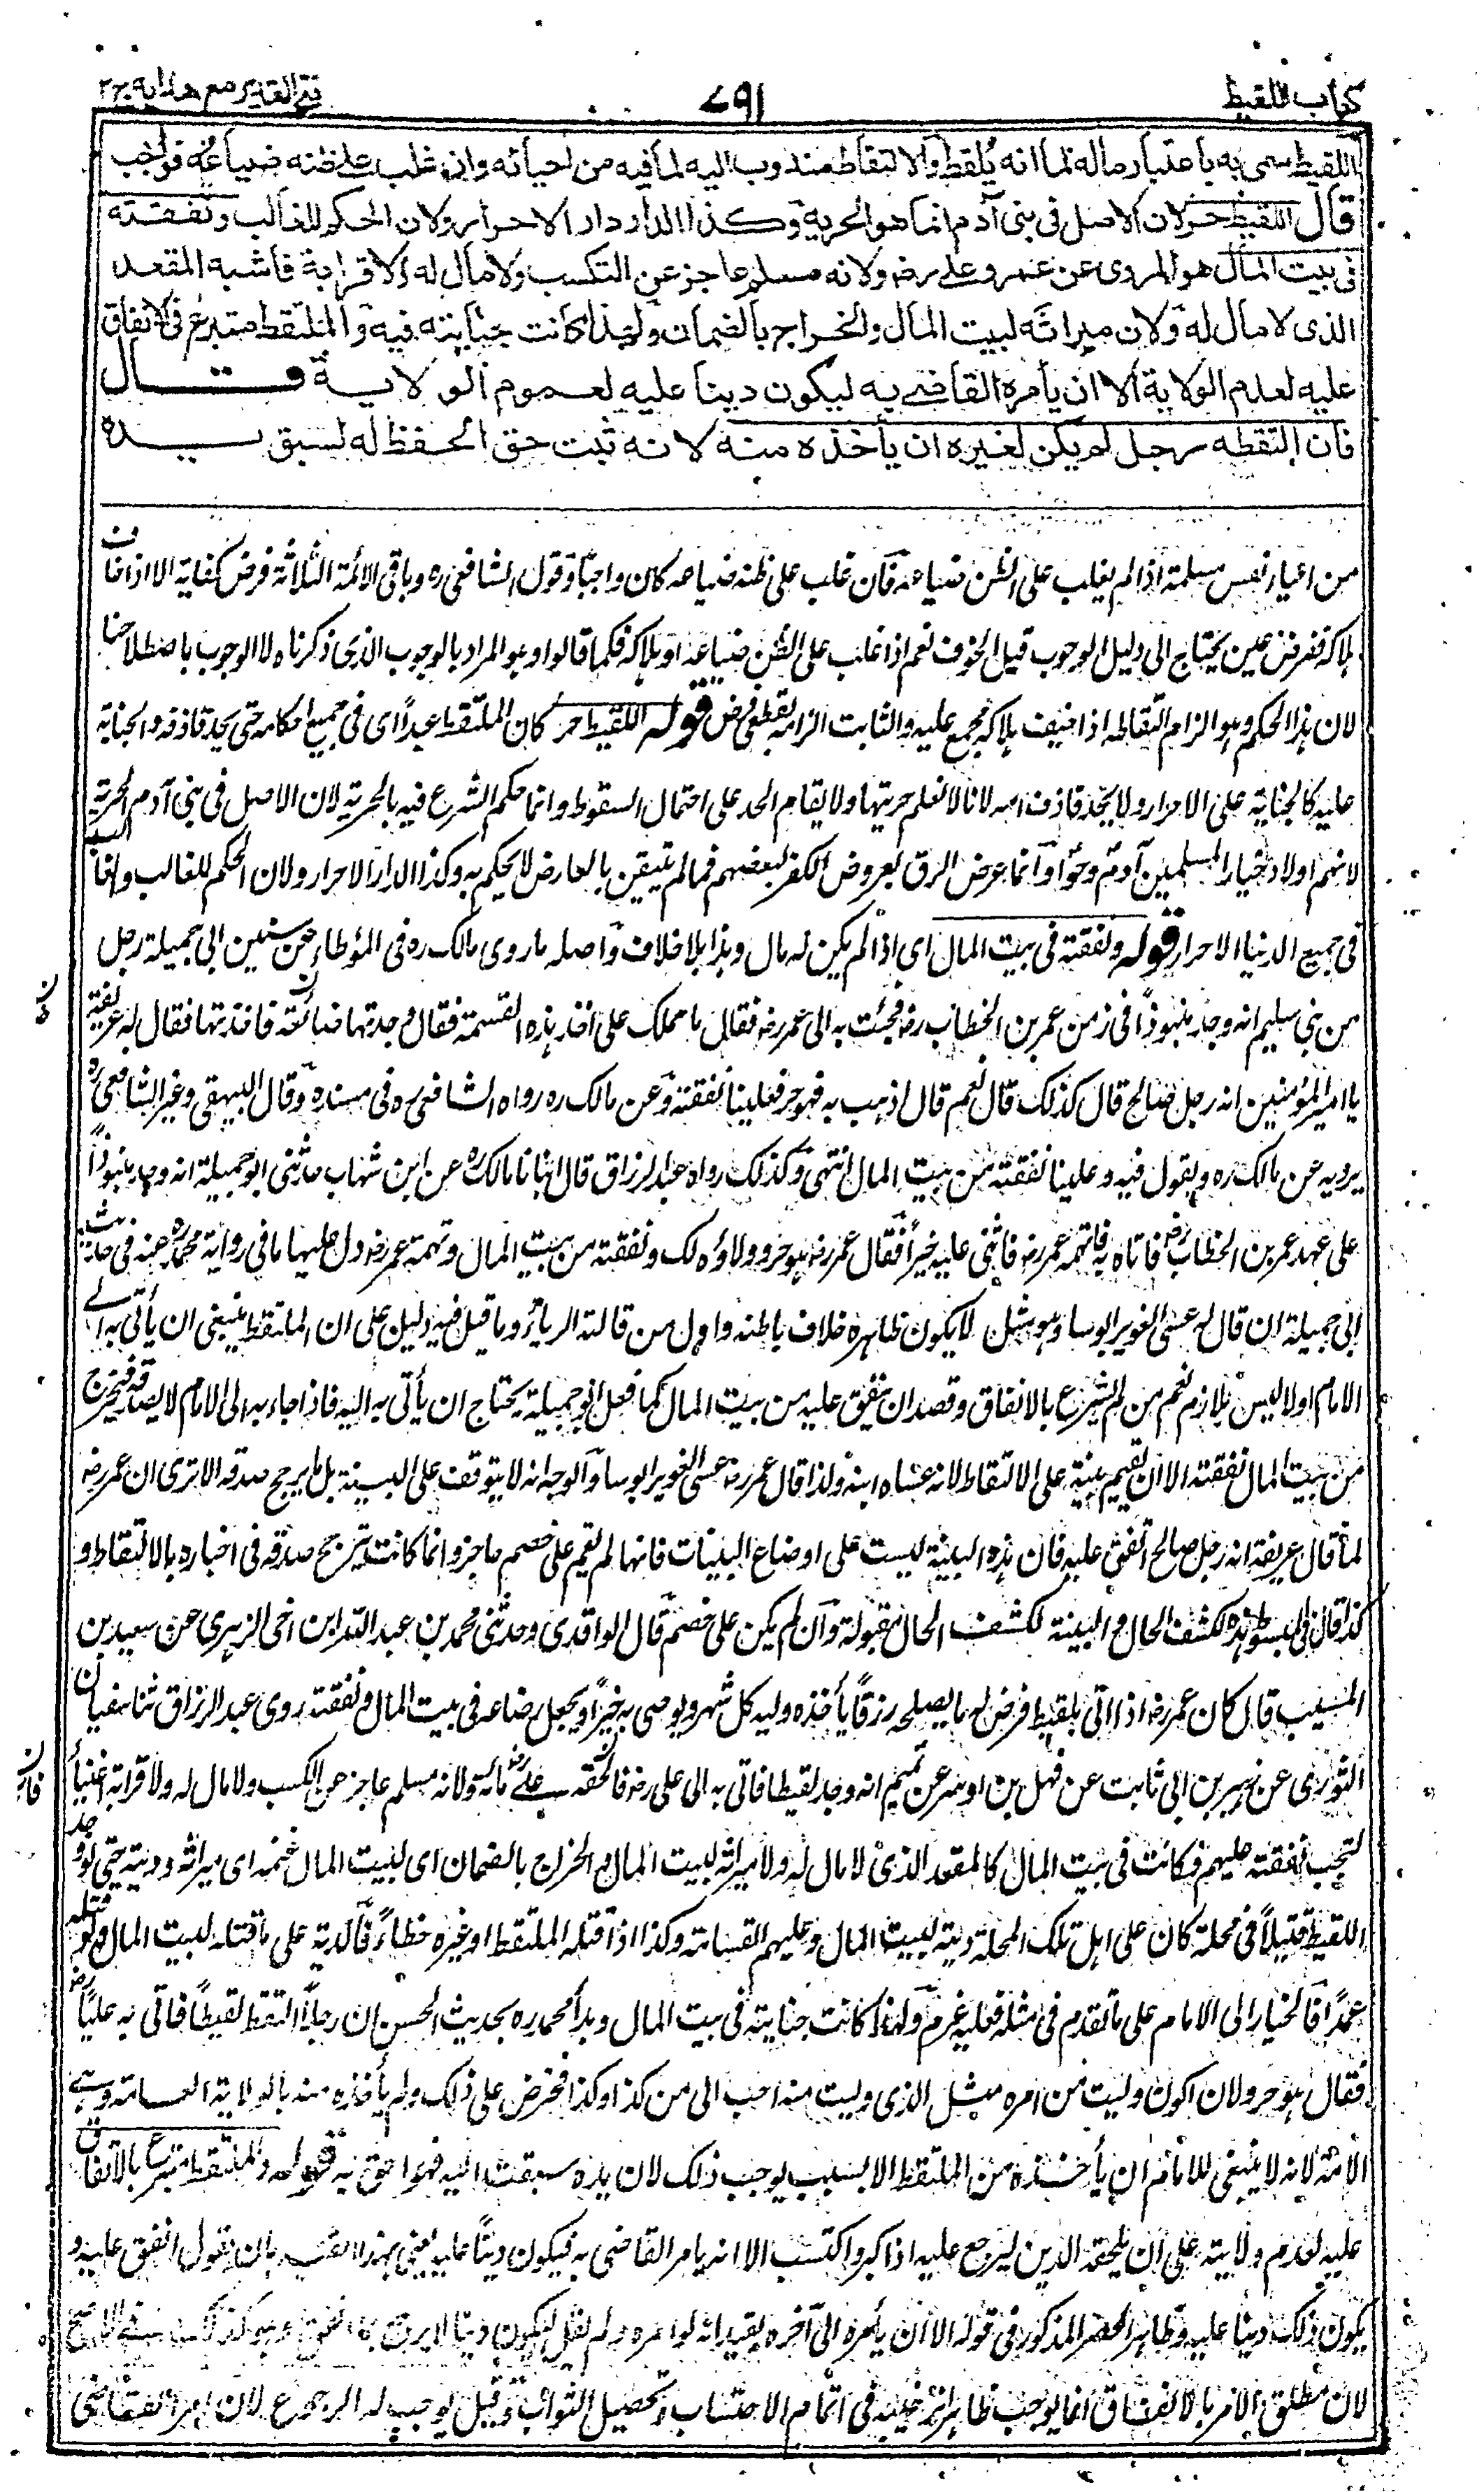 كتاب اللقيط
٧٩١
فتح القدير مع هدايه ج ٢
اللقيط سمي به باعتبار ماله لما انه يُلقط والالتقاط مندوب اليه لما فيه من احيائه وان غلب على ظنه ضياعه فواجب
قال اللقيط حر لان الاصل في بني آدم انما هو الحرية وكذا الدار دار الاحرار ولان الحكم للغالب ونفقته
في بيت المال هو المروي عن عمر وعلي رض ولانه مسلم عاجز عن التكسب ولا مال له ولا قرابة فاشبه المقعد
الذي لا مال له ولان ميراثه لبيت المال والخراج بالضمان ولهذا كانت جنايته فيه والملتقط متبرع في الانفاق
عليه لعدم الولاية الا ان يأمره القاضي به ليكون دينا عليه لعموم الولاية قال
فان التقطه رجل لم يكن لغيره ان يأخذه منه لانه ثبت حق الحفظ له لسبق يده
من احياء نفس مسلمة اذا لم يغلب على الظن ضياعه فان غلب على ظنه ضياعه كان واجبا وقول الشافعي ره وباقي الائمة الثلاثة فرض كفاية الا اذا خاف
هلاكه ففرض عين يحتاج الى دليل الوجوب قبل الخوف نعم اذا غلب على الظن ضياعه او هلاكه فكما قالوا وهو المراد بالوجوب الذي ذكرناه لا الوجوب باصطلاحنا
لان هذا الحكم وهو الزام التقاطه اذا خيف هلاكه مجمع عليه والثابت الزامه بقطعي فرض قوله اللقيط حر كان الملتقط عبدا اي في جميع احكامه حتى يحد قاذفه والجناية
عليه كالجناية على الاحرار ولا يحد قاذف امه لانا لا نعلم حريتها ولا يقام الحد على احتمال السقوط وانما حكم الشرع فيه بالحرية لان الاصل في بني آدم الحرية
لانهم اولاد خيار المسلمين آدم وحوا وانما عرض الرق بعروض الكفر لبعضهم فما لم تتيقن بالعارض لا يحكم به وكذا الدار الاحرار ولان الحكم للغالب والغالب
في جميع الدنيا الاحرار قوله ونفقته في بيت المال اي اذا لم يكن له مال وهذا بلا خلاف واصله ما روى مالك ره في المؤطاء عن سنين ابي جميلة رجل
من بني سليم انه وجد منبوذا في زمن عمر بن الخطاب رض فجئت به الى عمر رض فقال ما حملك على اخذ هذه النسمة فقال وجدتها ضائعة فاخذتها فقال له عريفه
يا امير المؤمنين انه رجل صالح قال كذلك قال نعم قال اذهب به فهو حر فعلينا نفقته وعن مالك ره رواه الشافعي ره في مسنده وقال البيهقي وغير الشافعي ره
يرويه عن مالك ره ويقول فيه وعلينا نفقته من بيت المال انتهى وكذلك رواه عبد الرزاق قال انبانا مالك ره عن ابن شهاب حدثني ابو جميلة انه وجد منبوذا
على عهد عمر بن الخطاب رض فاتاه به فاتهمه عمر رض فاثني عليه خيرا فقال عمر رض هو حر وولاؤه لك ونفقته من بيت المال وتهمة عمر رض دل عليها ما في رواية محمد ره عنه في حديث
ابي جميلة ان قال له عسى الغوير ابوسا وهو مثل لا يكون ظاهره خلاف باطنه واول من قالته الرباء وما قيل فيه دليل على ان الملتقط ينبغي ان يأتي به الى
الامام او لا ليس بلازم نعم من لم يتبرع بالانفاق وقصد ان ينفق عليه من بيت المال كما فعل ابو جميلة يحتاج ان يأتي به اليه فاذا جاء به الى الامام لا يصدقه فيخرج
من بيت المال نفقته الا ان يقيم بينة على الالتقاط لانه عساه ابنه ولذا قال عمر رض عسى الغوير ابوسا والوجه انه لا يتوقف على البينة بل ما يرجح صدقه الا ترى ان عمر رض
لما قال عريفه انه رجل صالح انفق عليه فان هذه البينة ليست على اوضاع البينات فانها لم تقم على خصم حاضر وانما كانت يترجح صدقه في اخباره بالالتقاط و
كذا قال في المبسوط هذه لكشف الحال والبينة لكشف الحال مقبولة وان لم يكن على خصم قال الواقدي وحدثني محمد بن عبد الله ابن اخي الزهري عن سعيد بن
المسيب قال كان عمر رض اذا اتي بلقيط فرض له ما يصلحه رزقا يأخذه وليه كل شهر ويوصي به خيرا ويجعل رضاعه في بيت المال ونفقته روى عبد الرزاق ثنا سفيان
الثوري عن زهير بن ابي ثابت عن ذهل بن اوس عن تميم انه وجد لقيطا فاتى به الى علي رض فالحقه علي رض مائة ولانه مسلم عاجز عن الكسب ولا مال له ولا قرابة اغنياء
لتجب نفقته عليهم فكانت في بيت المال كالمقعد الذي لا مال له ولا ميراثه لبيت المال والخراج بالضمان اي لبيت المال غنمه اي ميراثه وديته حتى لو وجد
اللقيط قتيلا في محلة كان على اهل تلك المحلة ديته لبيت المال وعليهم القسامة وكذا اذا قتله الملتقط او غيره خطاء فالدية على عاقلته لبيت المال ولو قتله
عمدا فالخيار الى الامام على ما تقدم في مثله فعليه غرمه ولهذا كانت جنايته في بيت المال وبدأ محمد ره بحديث الحسن ان رجلا التقط لقيطا فاتى به عليا رض
فقال هو حر ولان اكون وليت من امره مثل الذي وليت منه احب الي من كذا وكذا فحرض على ذلك ولم يأخذه منه بالولاية العامة وهي
الامة لانه لا ينبغي للامام ان يأخذه من الملتقط الا بسبب يوجب ذلك لان يده سبقت اليه فهو احق به قوله والملتقط متبرع بالانفاق
عليه لعدم ولايته على ان يلحقه الدين ليرجع عليه اذا كبر واكتسب الا انه يامر القاضي به فيكون دينا عليه يعني بهذا القيد بان يقول انفق عليه و
يكون ذلك دينا عليه وظاهر الحصر المذكور في قوله الا ان يأمره الى آخره يفيد انه لو امره ولم يقل ليكون دينا لا يرجع بما انفق وهو كذلك في الاصح
لان مطلق الامر بالانفاق انما يوجب ظاهرا ترغيبه في اتمام الاحتساب وتحصيل الثواب وقيل يوجب له الرجوع لان امر القاضي